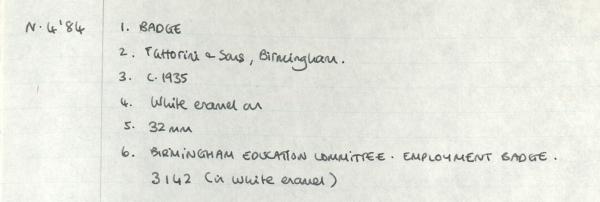 N.4'84 1. BADGE
2. Fattorini & Sons, Birmingham.
3. C.1935
4. White enamel on
5. 32mm
6. BIRMINGHAM EDUCATION COMMITTEE. EMPLOYMENT BADGE.
3142 (in white enamel)